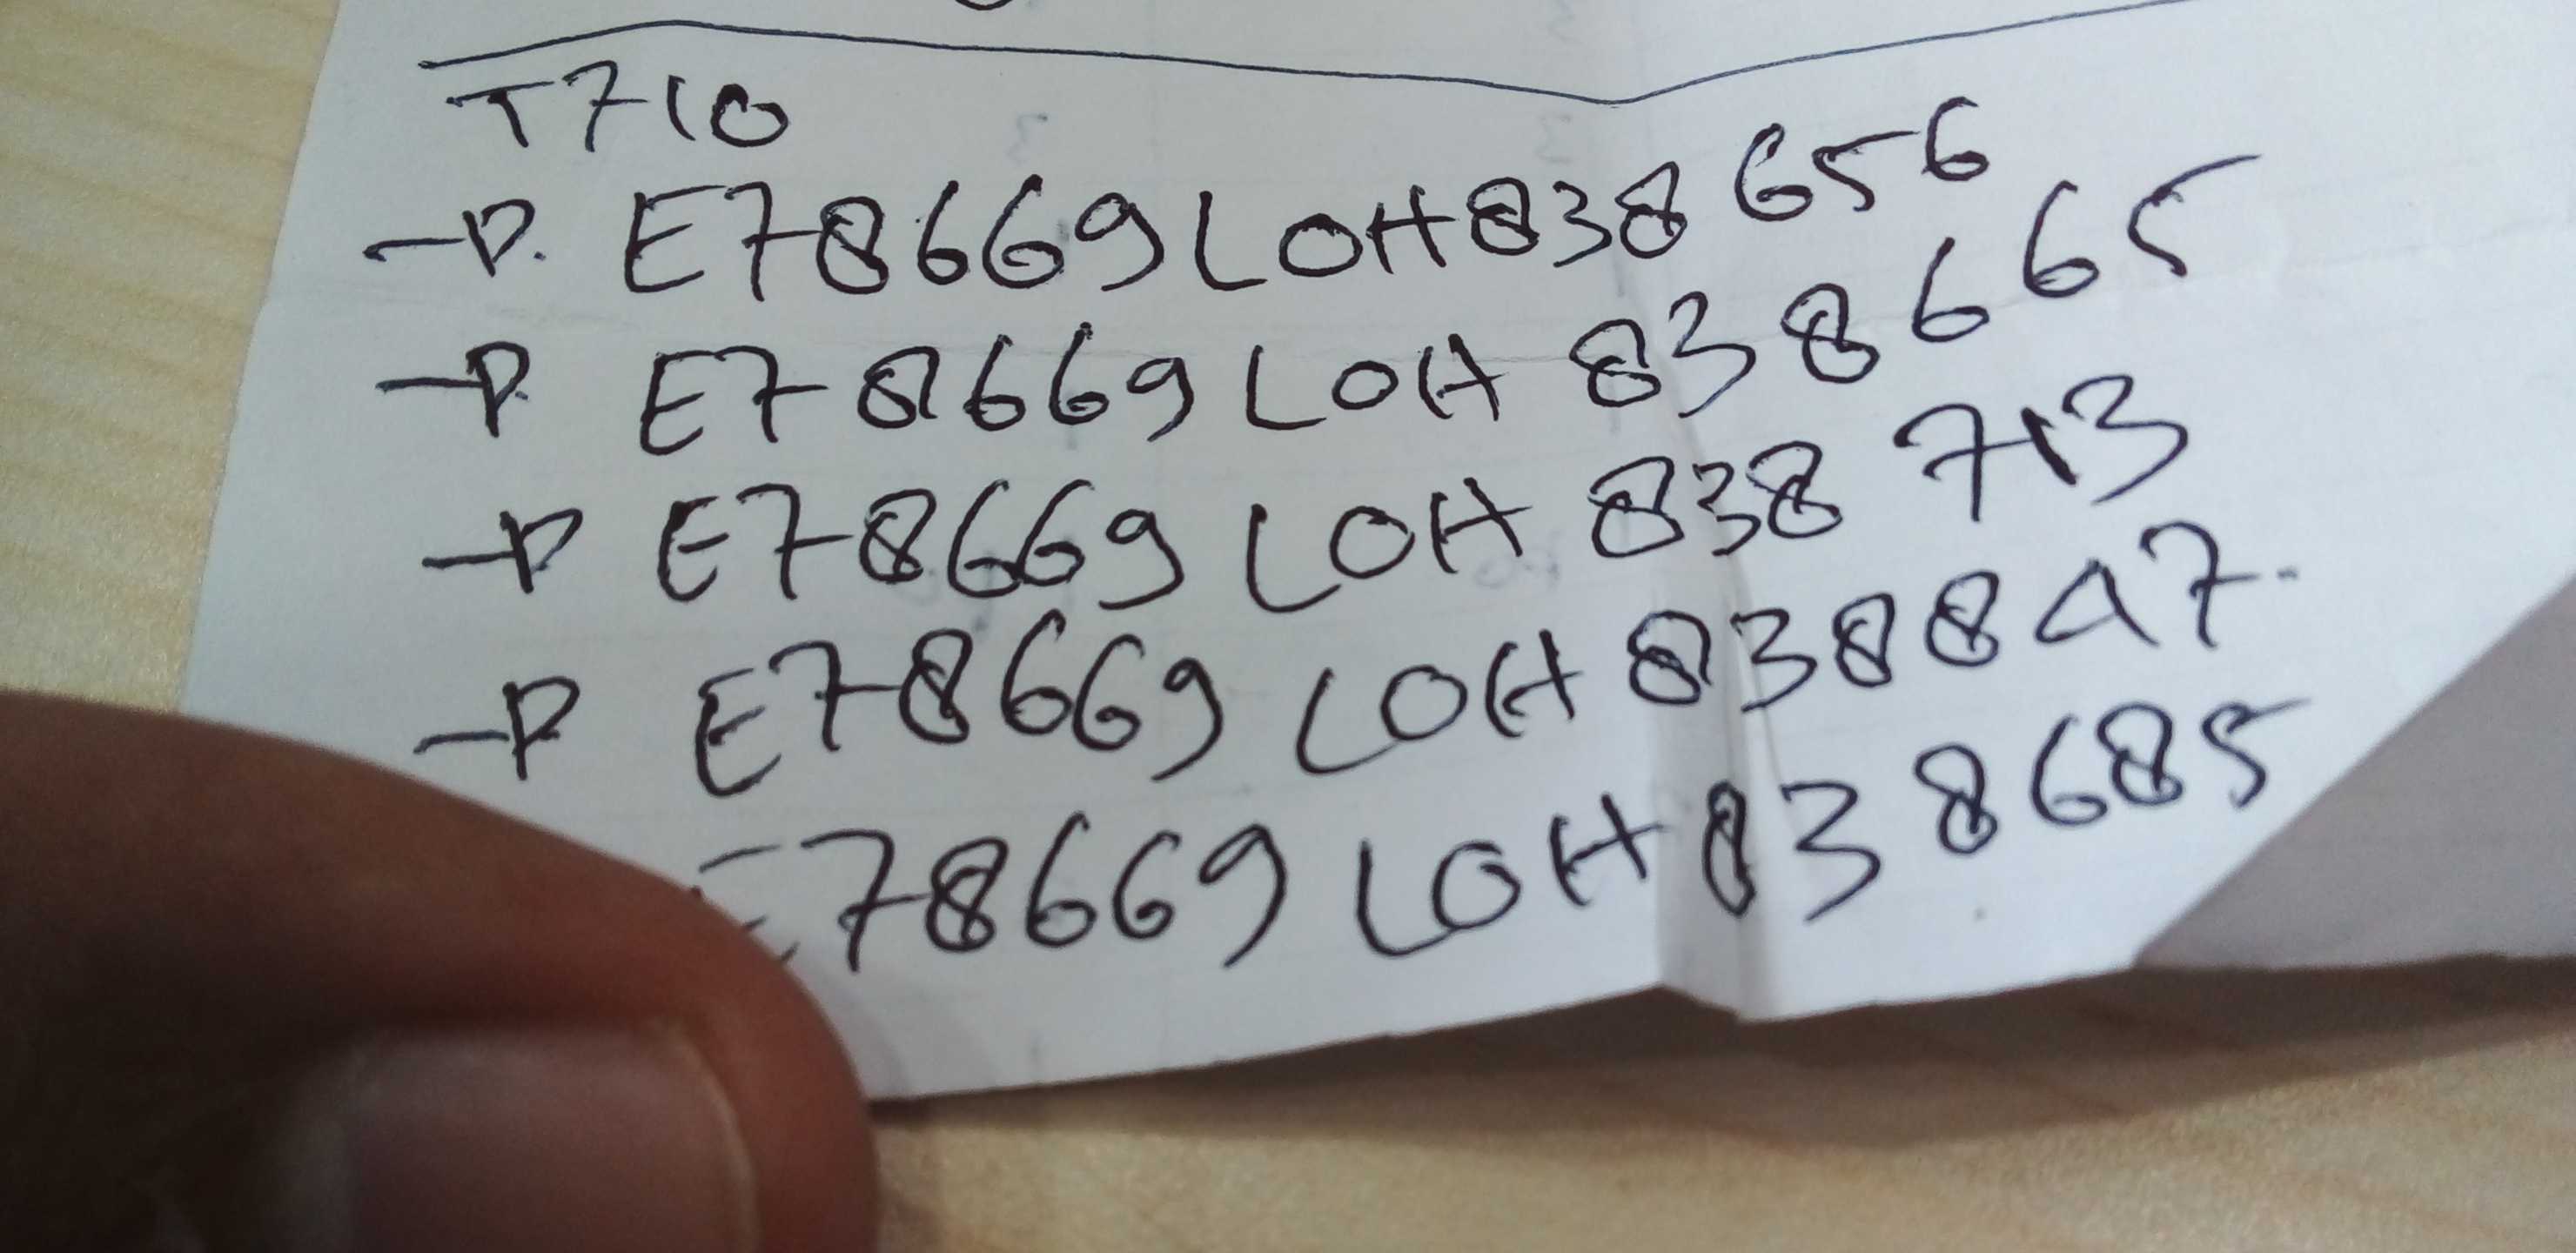 T710
-P. E78669LOH838656
-P. E78669LOH838665
-P E78669LOH838713
-P E78669LOH838847.
E78669LOH838685